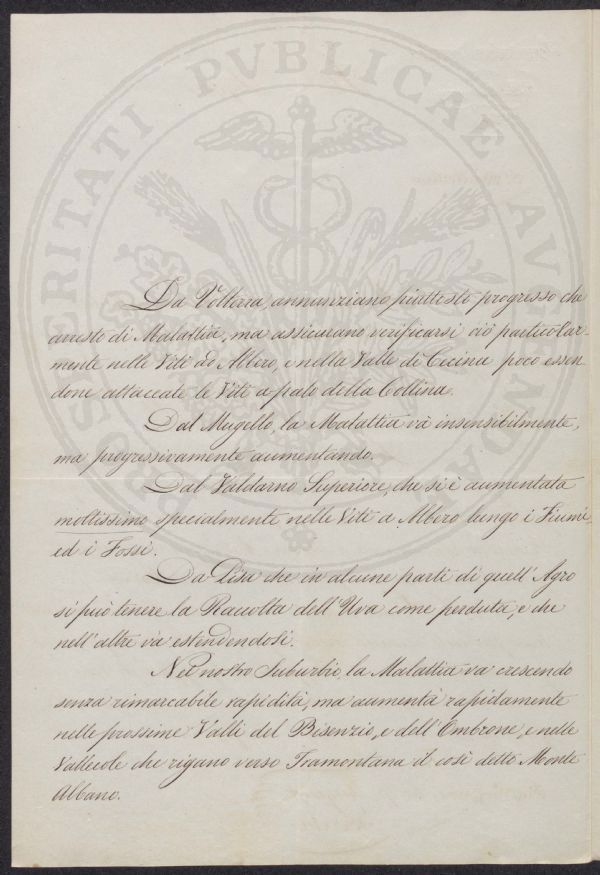 PROSPERITATI PVBLICAE AVGENDAE
Da Volterra, annunziano piuttosto progresso che
arresto di Malattia, ma assicurano verificarsi ciò particolar-
mente nelle Viti ad Albero, e nella Valle di Cecina poco essen-
done attaccate le Viti a palo della Collina.
Dal Mugello, la Malattia và insensibilmente,
ma progressivamente aumentando.
Dal Valdarno Superiore, che si è aumentata
moltissimo specialmente nelle Viti a Albero lungo i Fiumi,
ed i Fossi.
Da Pisa che in alcune parti di quell'Agro
si può tenere la Raccolta dell'Uva come perduta, e che
nell'altre và estendendosi.
Nel nostro Suburbio, la Malattia va crescendo
senza rimarcabile rapidità, ma aumenta rapidamente
nelle prossime Valli del Bisenzio, e dell'Ombrone, e nelle
Vallecole che rigano verso Tramontana il così detto Monte
Albano.